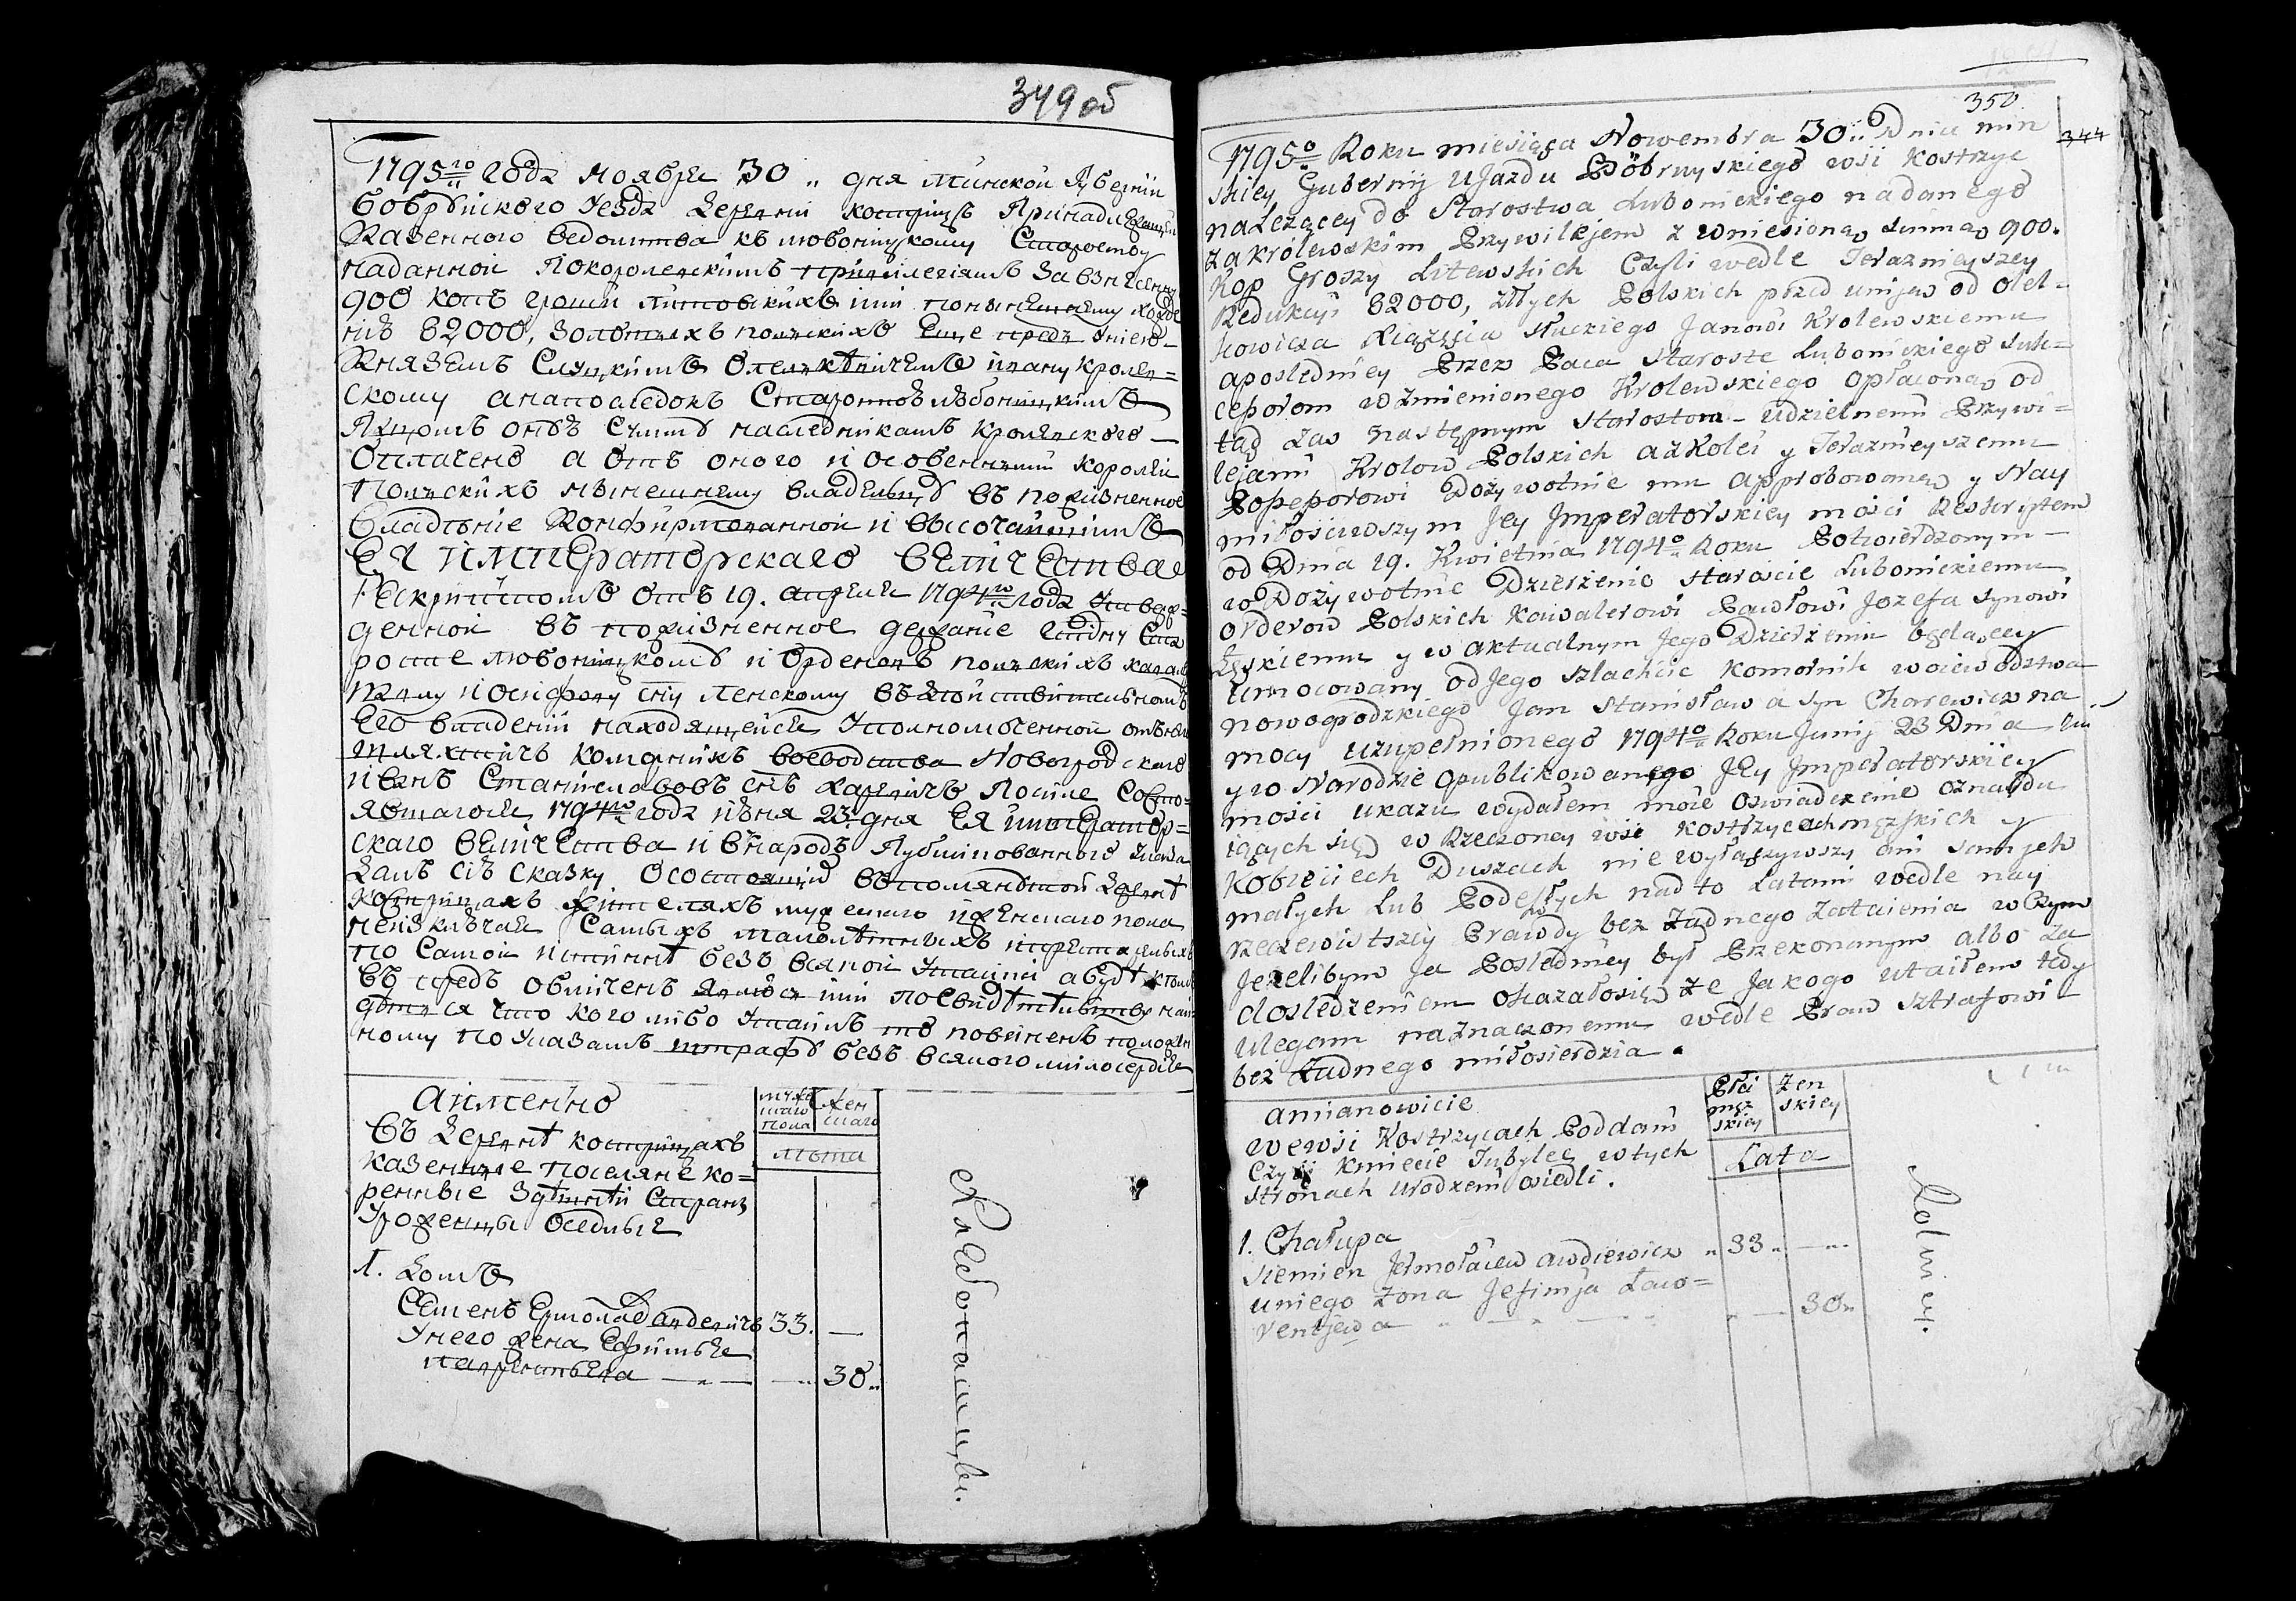 349 об
1795го года ноября 30 „ дня минской губернїи
бобруйского уезда деревни кострицъ принадлежащей
казенного ведомства къ любоницкому староству
наданной покоролевскимъ привилегіамъ за взнесенну
900 копъ грошей литовскихъ или понынешнему
82000, золотыхъ польскихъ еще предъ униею
княземъ слуцкимъ олельковичемъ ивану кролев=
скому анапоследокъ старостою любоницкимъ
пацомъ отъ суммъ наследникамъ кролевского
оплачено а отъ оного и особенными королей
польскихъ нынешнему владельцу въ пожизненное
владѣніе конфирмованной и высочайшимъ
ЕЯ ИМПЕРАТОРСКАГО ВЕЛИЧЕСТВА
рескриптомъ отъ 19. апреля 1794го года утверж=
денной въ пожизненное держаніе ста
росте любоницкому и орденовъ польскихъ кавале
осифову сну ленскому въ действительномъ
его владении находящейся уполномоченной отънего
шляхтичъ коморникъ воеводства новогродского
иванъ станиславовъ снъ харевичъ после состо=
явшагося 1794го года июня 23 дня ЕЯ император=
скаго величества и внародъ публикованного указа
далъ сію сказку о состоящихъ въпомянутой деревне
кострицахъ жителяхъ мужеска и женскаго пола
неизключая самыхъ малолетныхъ ипрестарелыхъ
по самой истинне безъ всякой утайки а буде
въ передъ обличенъ явлюсь или по свидетельству
что кого либо утаилъ то повиненъ положен
ному по указамъ штрафу безъ всякого милосердія
Аимеенно
муже
скаго
пола
жен
скаго
Въ деревне кострицахъ
казенные поселяне ко=
ренные здешней страны
уроженцы оседлые
лета
1. домъ
Семенъ ермолаевъ авдеевичъ 33. —
унего жена ефимья
лаврентьева — „ — — „ 30„
Хлебопашцы.
350.
344
1795o Roku miesiąca Nowembra 30 „ Dnia min
skiey Gubernij Ujazdu Bobruyskiego wsi Kostrzyc
należącey do Starostwa Lubonickiego nadanego
zakrólewskim Przywilejem z wniesioną summą 900.
Kop Groszy Litewskich Czyli wedle Terazmeyszey
Redukcyi 82000, złłych Polskich przed unią od Olel-
kowicza Xiążęcia słuckiego Janowi Krolewskiemu
aposledniey Przez Paca Staroste Lubonickiego Suk=
cessorom wzmienionego Krolewskiego opłaconą od
tąd zas następnym starostom - udzielnemi Przywi=
lejami Krolow Polskich azKolei y Terazmeyszemu
Possessorowi Dożywotnie mu approbowaną y Nay
miłościwszym Jey Jmperatorskiey mości Reskryptem
od Dnia 19. Kwietnia 1794o Roku Potwierdzonym —
w Dożywotnie Dzierżenie staroscie Lubonickiemu
Orderow Polskich Kawalerowi Pawłowi Jozefa synowi
Łęskiemu y w aktualnym Jego Dzierżeniu będącey
Umocowany od Jego szlachcic Komornik wojewodztwa
nowogrodzkiego Jan Stanisława syn Charewicz na
mocy uzupełnionego 1794o Roku Junij 23 Dnia
y w Narodzie opublikowanego Jey Jmperatorskiey
mości ukazu wydałem moie oswiadczenie oznaydu
iących się w Rzeczoney wsi Kostrzycach męzskich y
Kobieciech Duszach nie wyłączywszy ani samych
małych Lub Podeszłych nad to Latami wedle nay
rzeczewistszey Prawdy bez Żadnego Zataienia w Czym
Jezelibym Ja Posledniey był Przekonanym albo Za
dosledzeniem okazałosię że Jakogo utaiłem tedy
ulegam naznaczonemu wedle Praw sztrafowi
bez Żadnego miłosierdzia .
amianowicie
Płci
męz
skiey
Żen
skiey
wewsi Kostrzycach Poddani
Czyli Kmiecie Tubylce wtych
stronach Urodzeni osiedli .
Lata
1. Chałupa
siemien Jermołaiew awdiewicz „ 33 „ — „
uniego Żona Jefimja Ław=
rentjewa „ — „ — „ — 30„
Rolnicy.